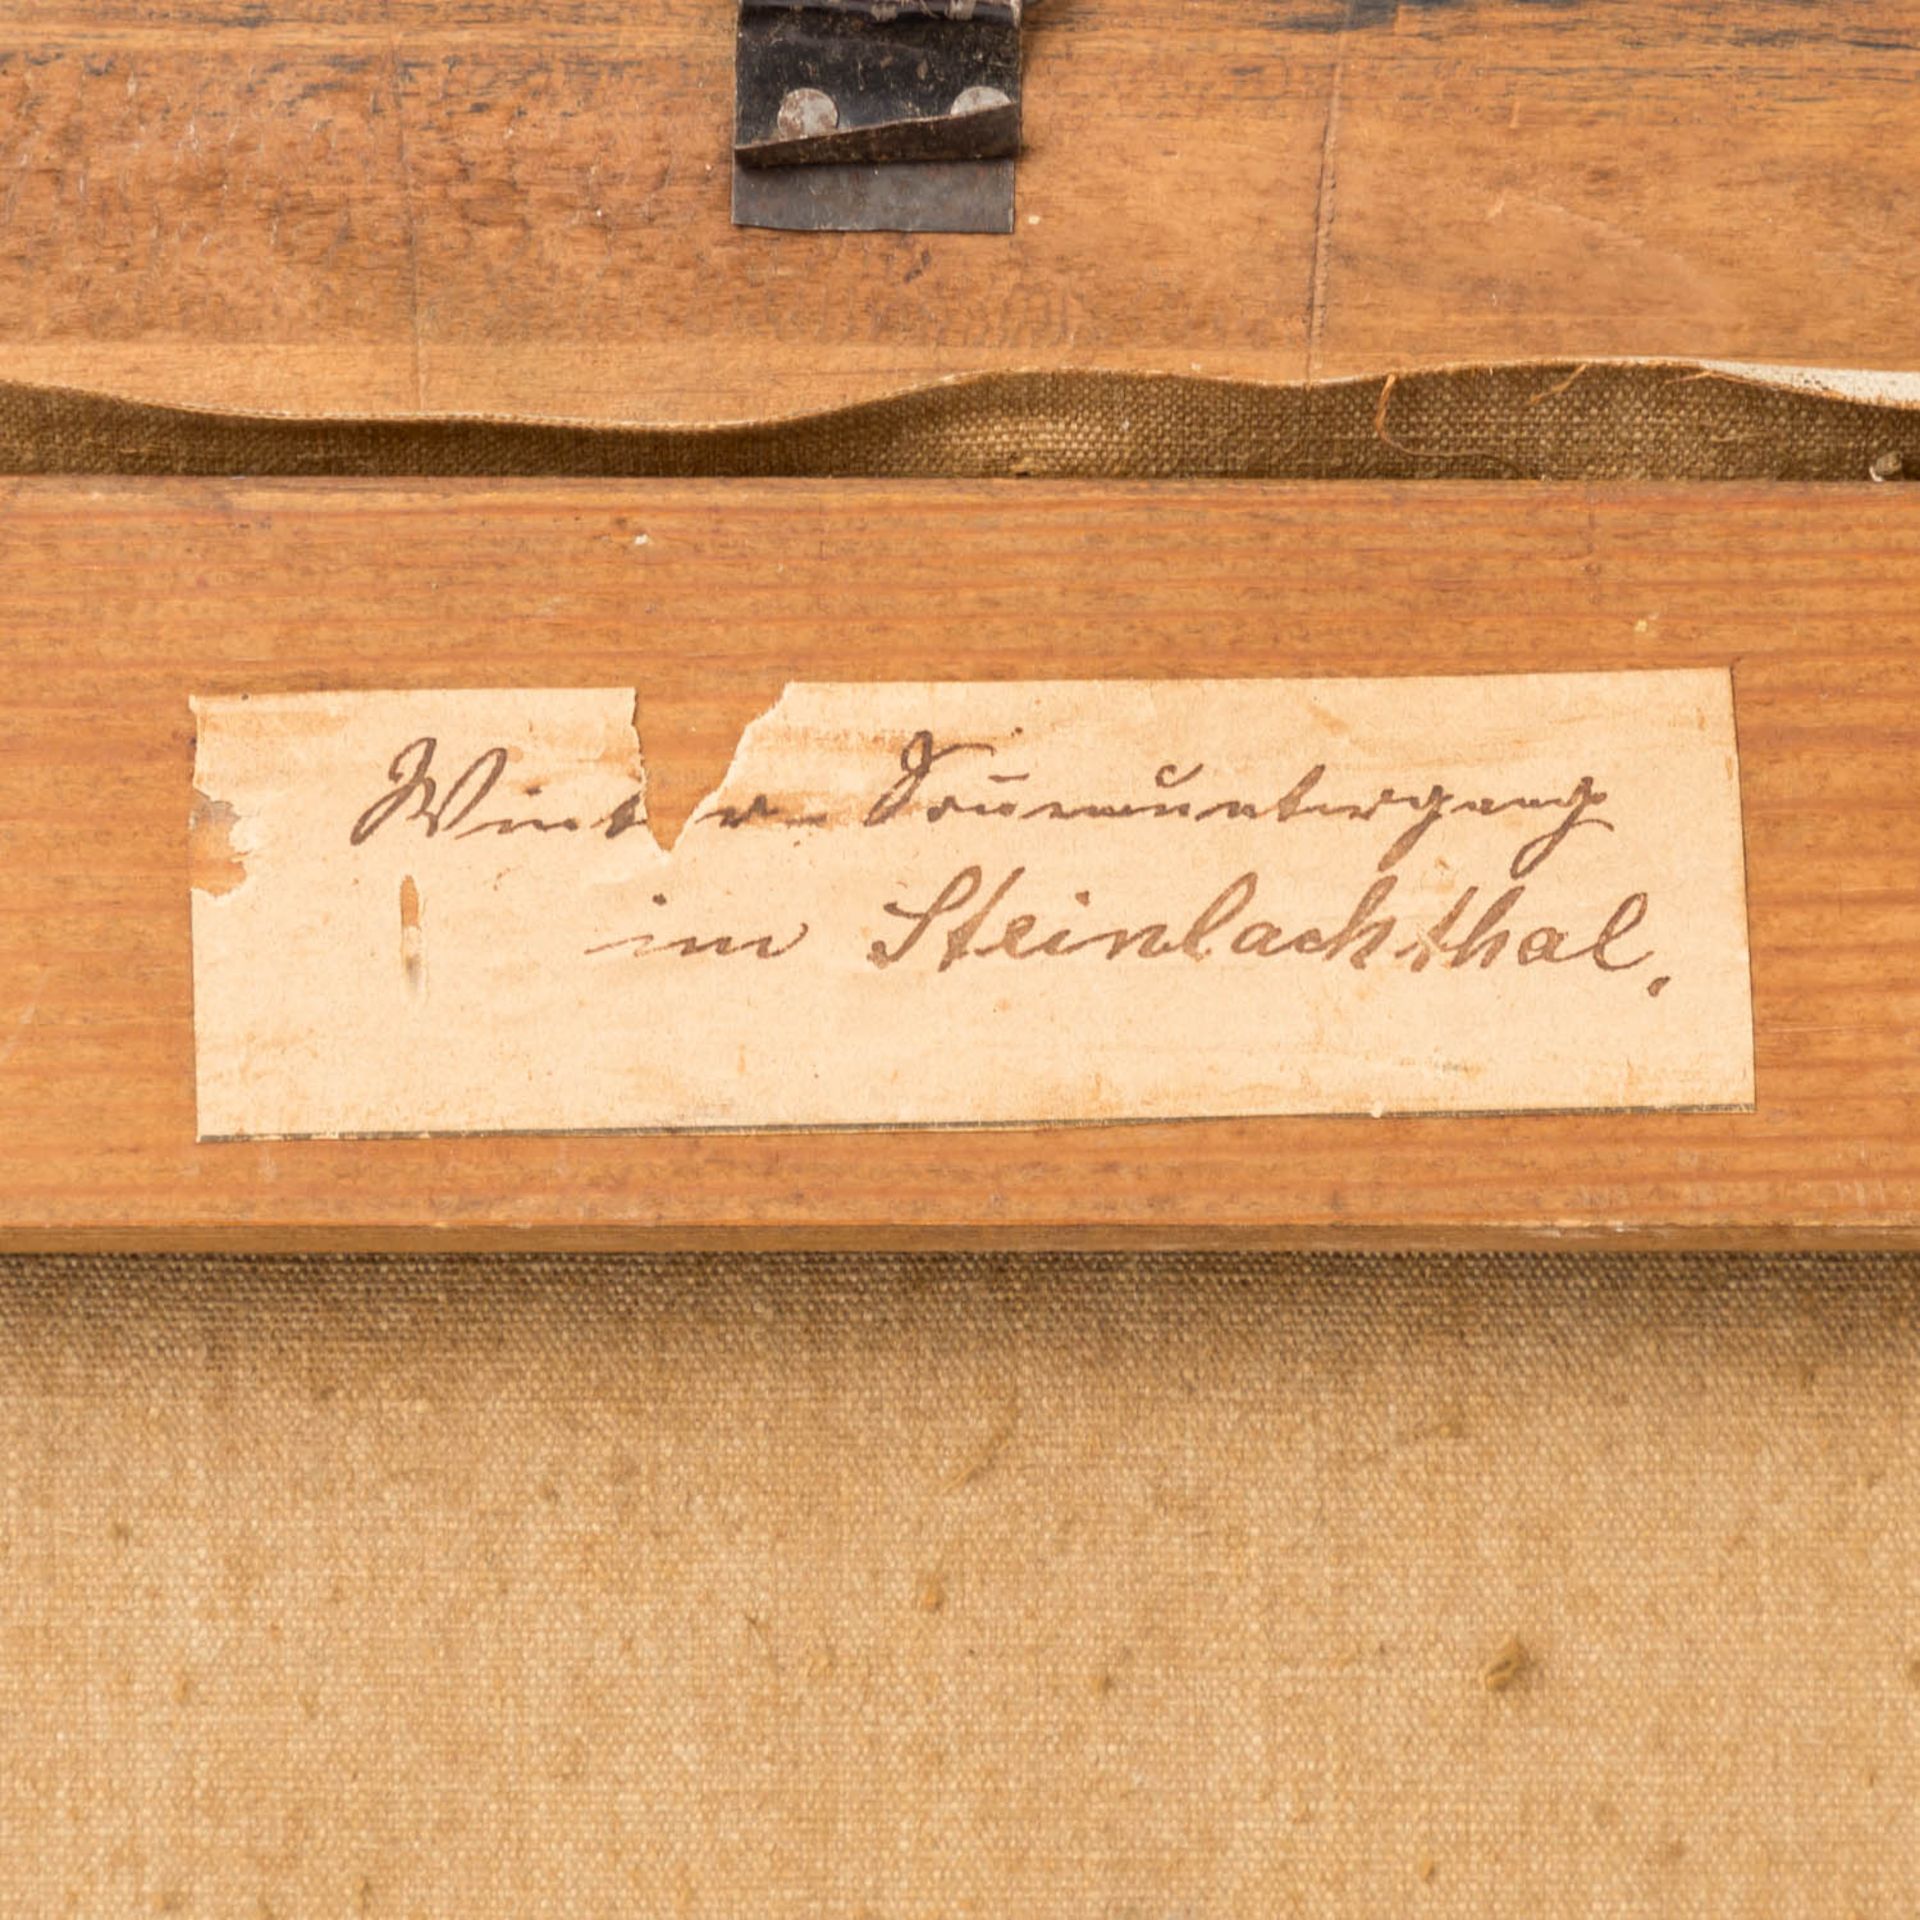 Winter-Sonnenuntergang
im Steinlachthal.